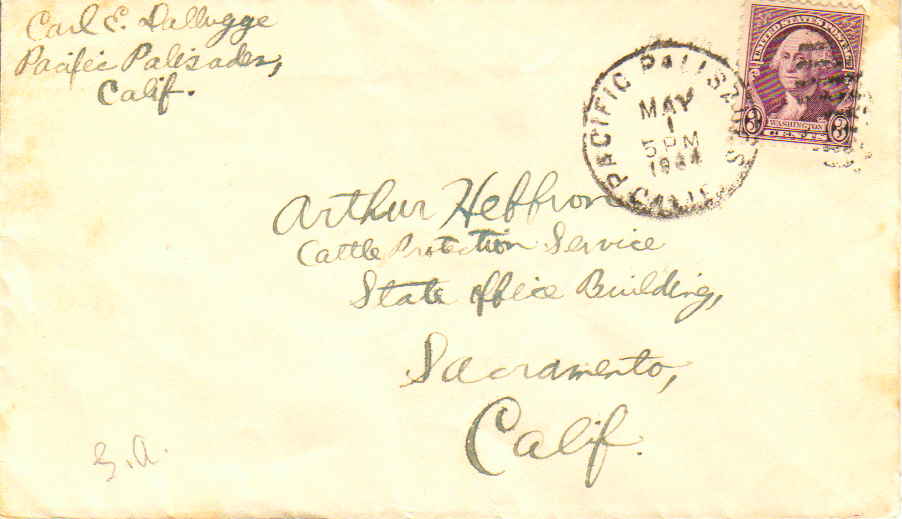 Carl E. Dallugge
Pacific Palisades,
Calif.
PACIFIC PALISADES
MAY
1
5 PM
CALIF.
UNITED STATES POSTAGE
3 WASHINGTON 3
CENTS
Arthur Heffron
Cattle Protection Service
State Office Building,
Sacramento,
Calif.